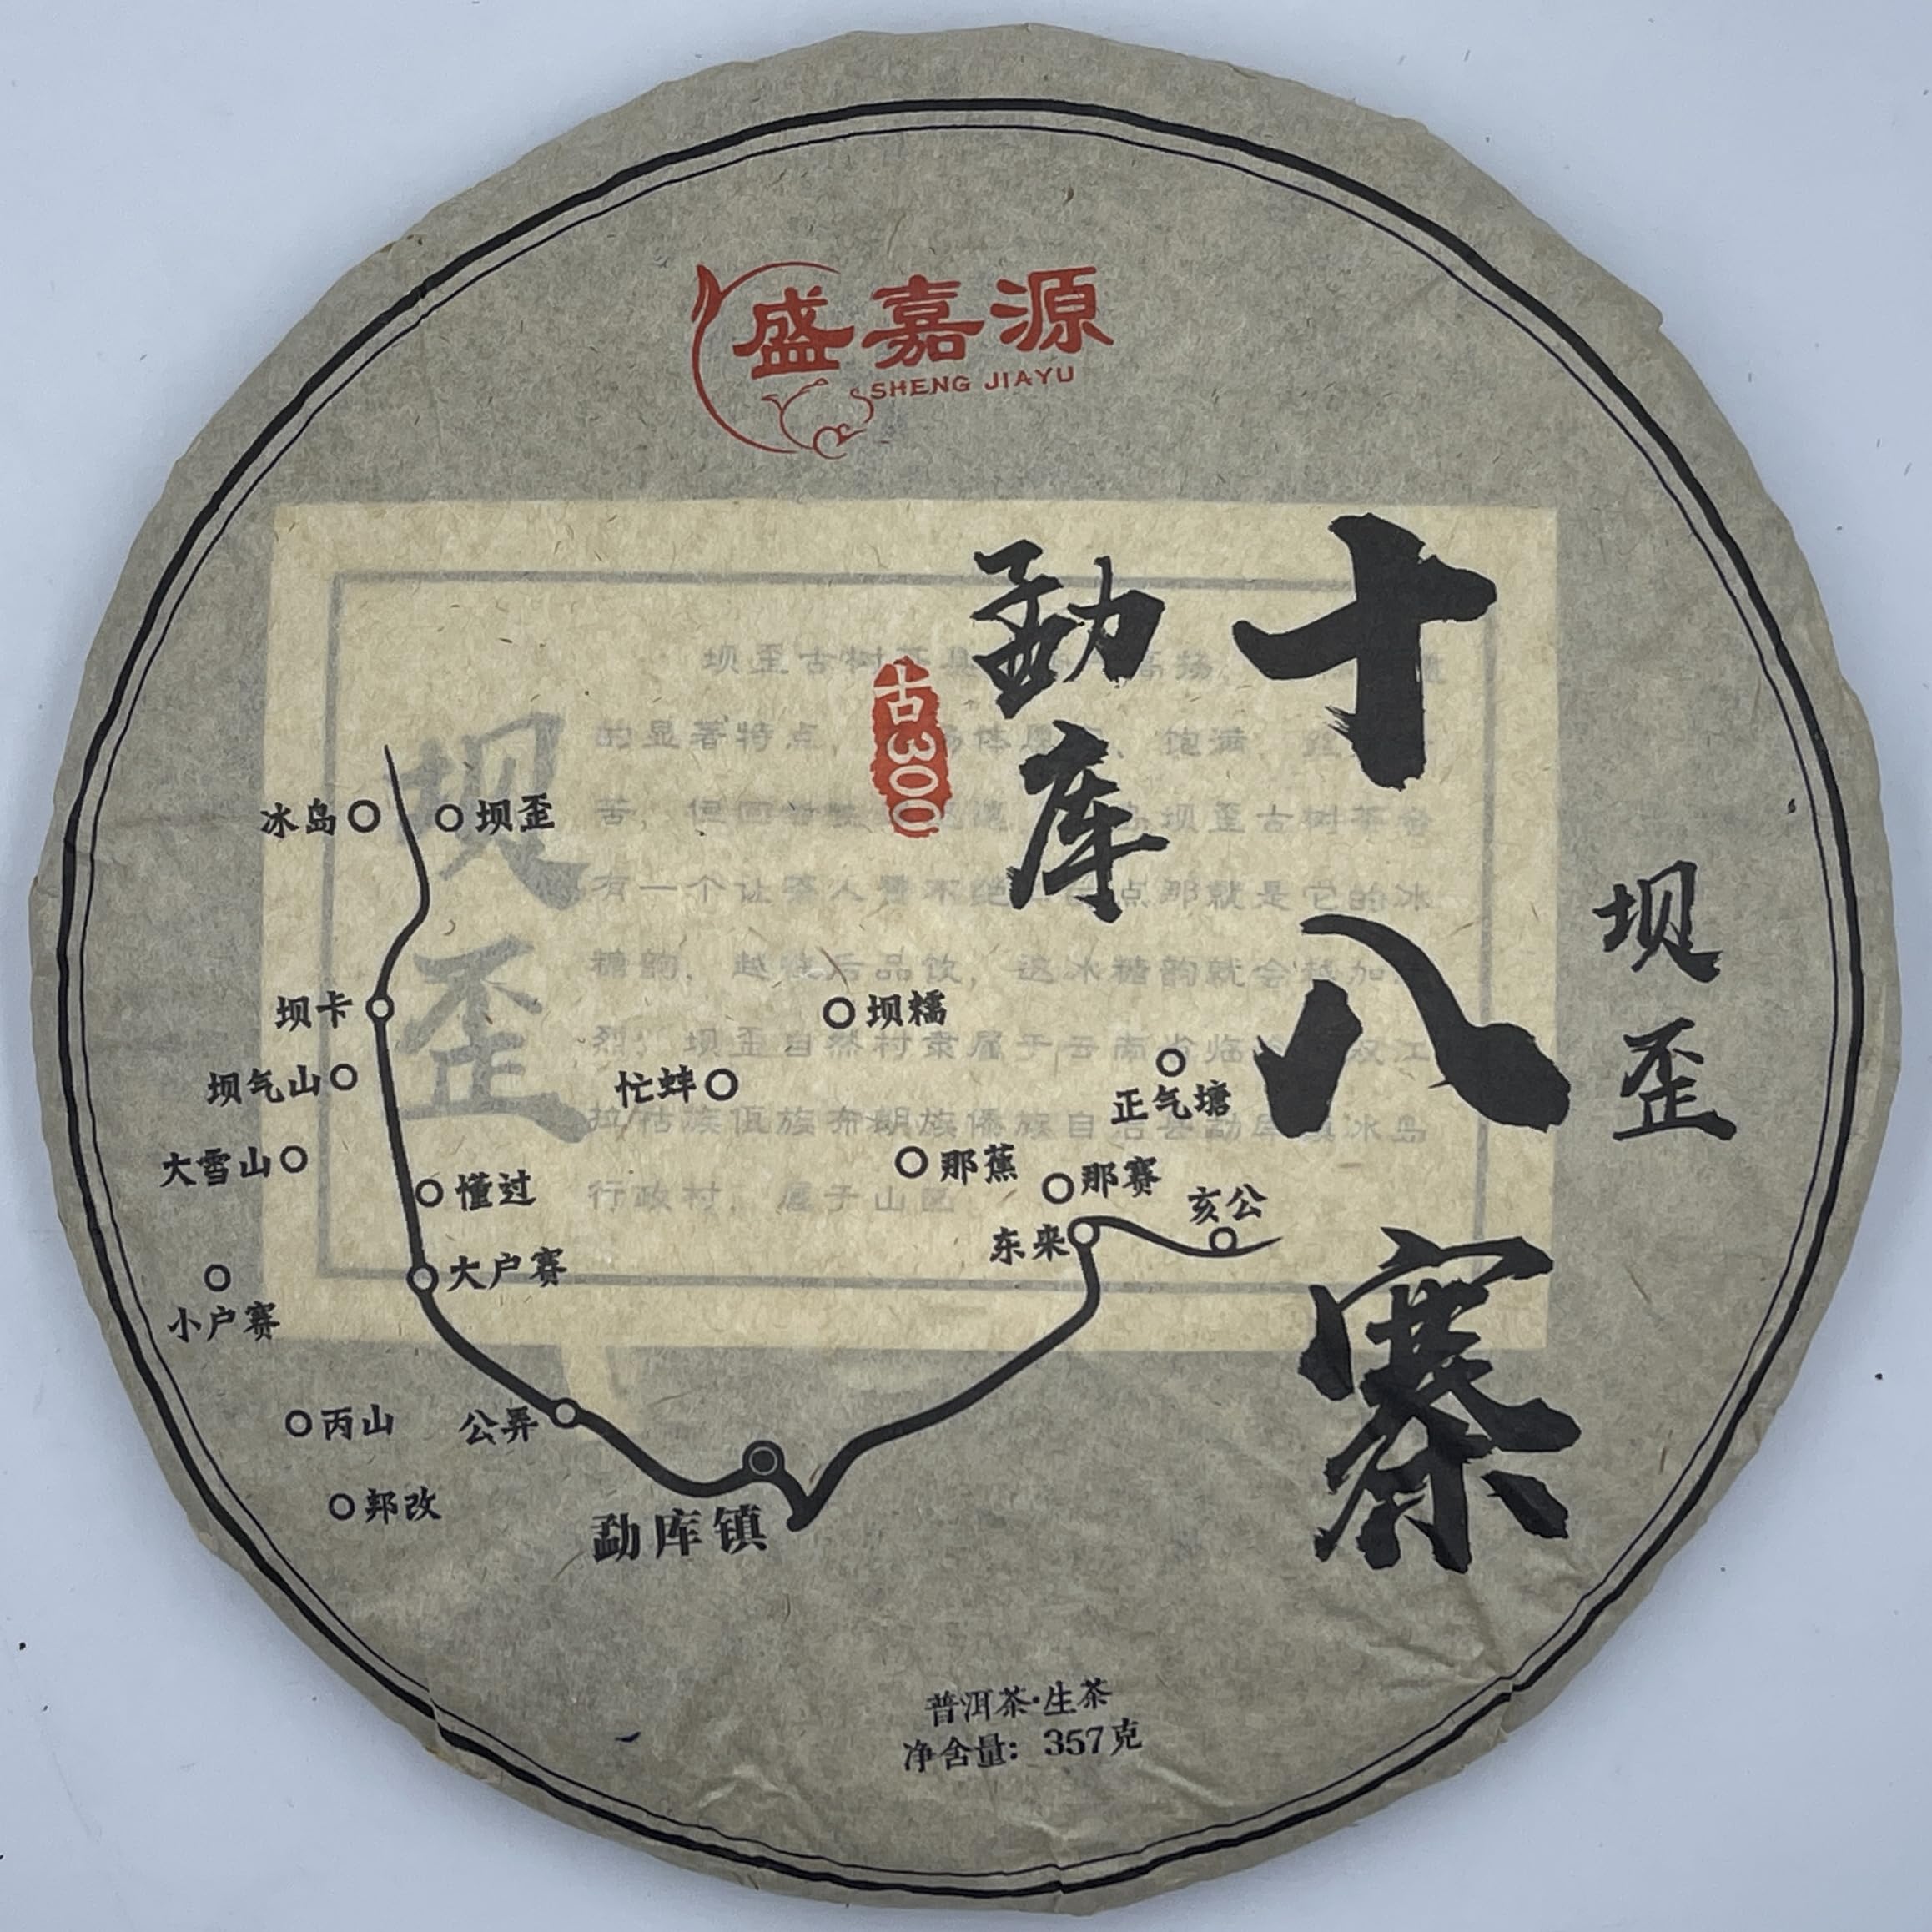 盛嘉源
SHENG JIAYU
十八寨
勐库
古300
坝歪
冰岛
坝歪
坝卡
坝糯
坝气山
忙蚌
正气塘
大雪山
那蕉
那赛
懂过
亥公
东来
大户赛
小户赛
丙山
公弄
邦改
勐库镇
普洱茶·生茶
净含量：357克
坝歪
坝歪古树茶具
的显著特点，汤体厚、饱满、
苦，但回甘 坝歪古树茶含
有一个让茶人赞不绝 点那就是它的冰
糖韵，越往后品饮，这冰糖韵就会越加
烈。坝歪自然村隶属于云南省临 双江
拉祜族佤族布朗族傣族自治县勐库镇冰岛
行政村，属于山区